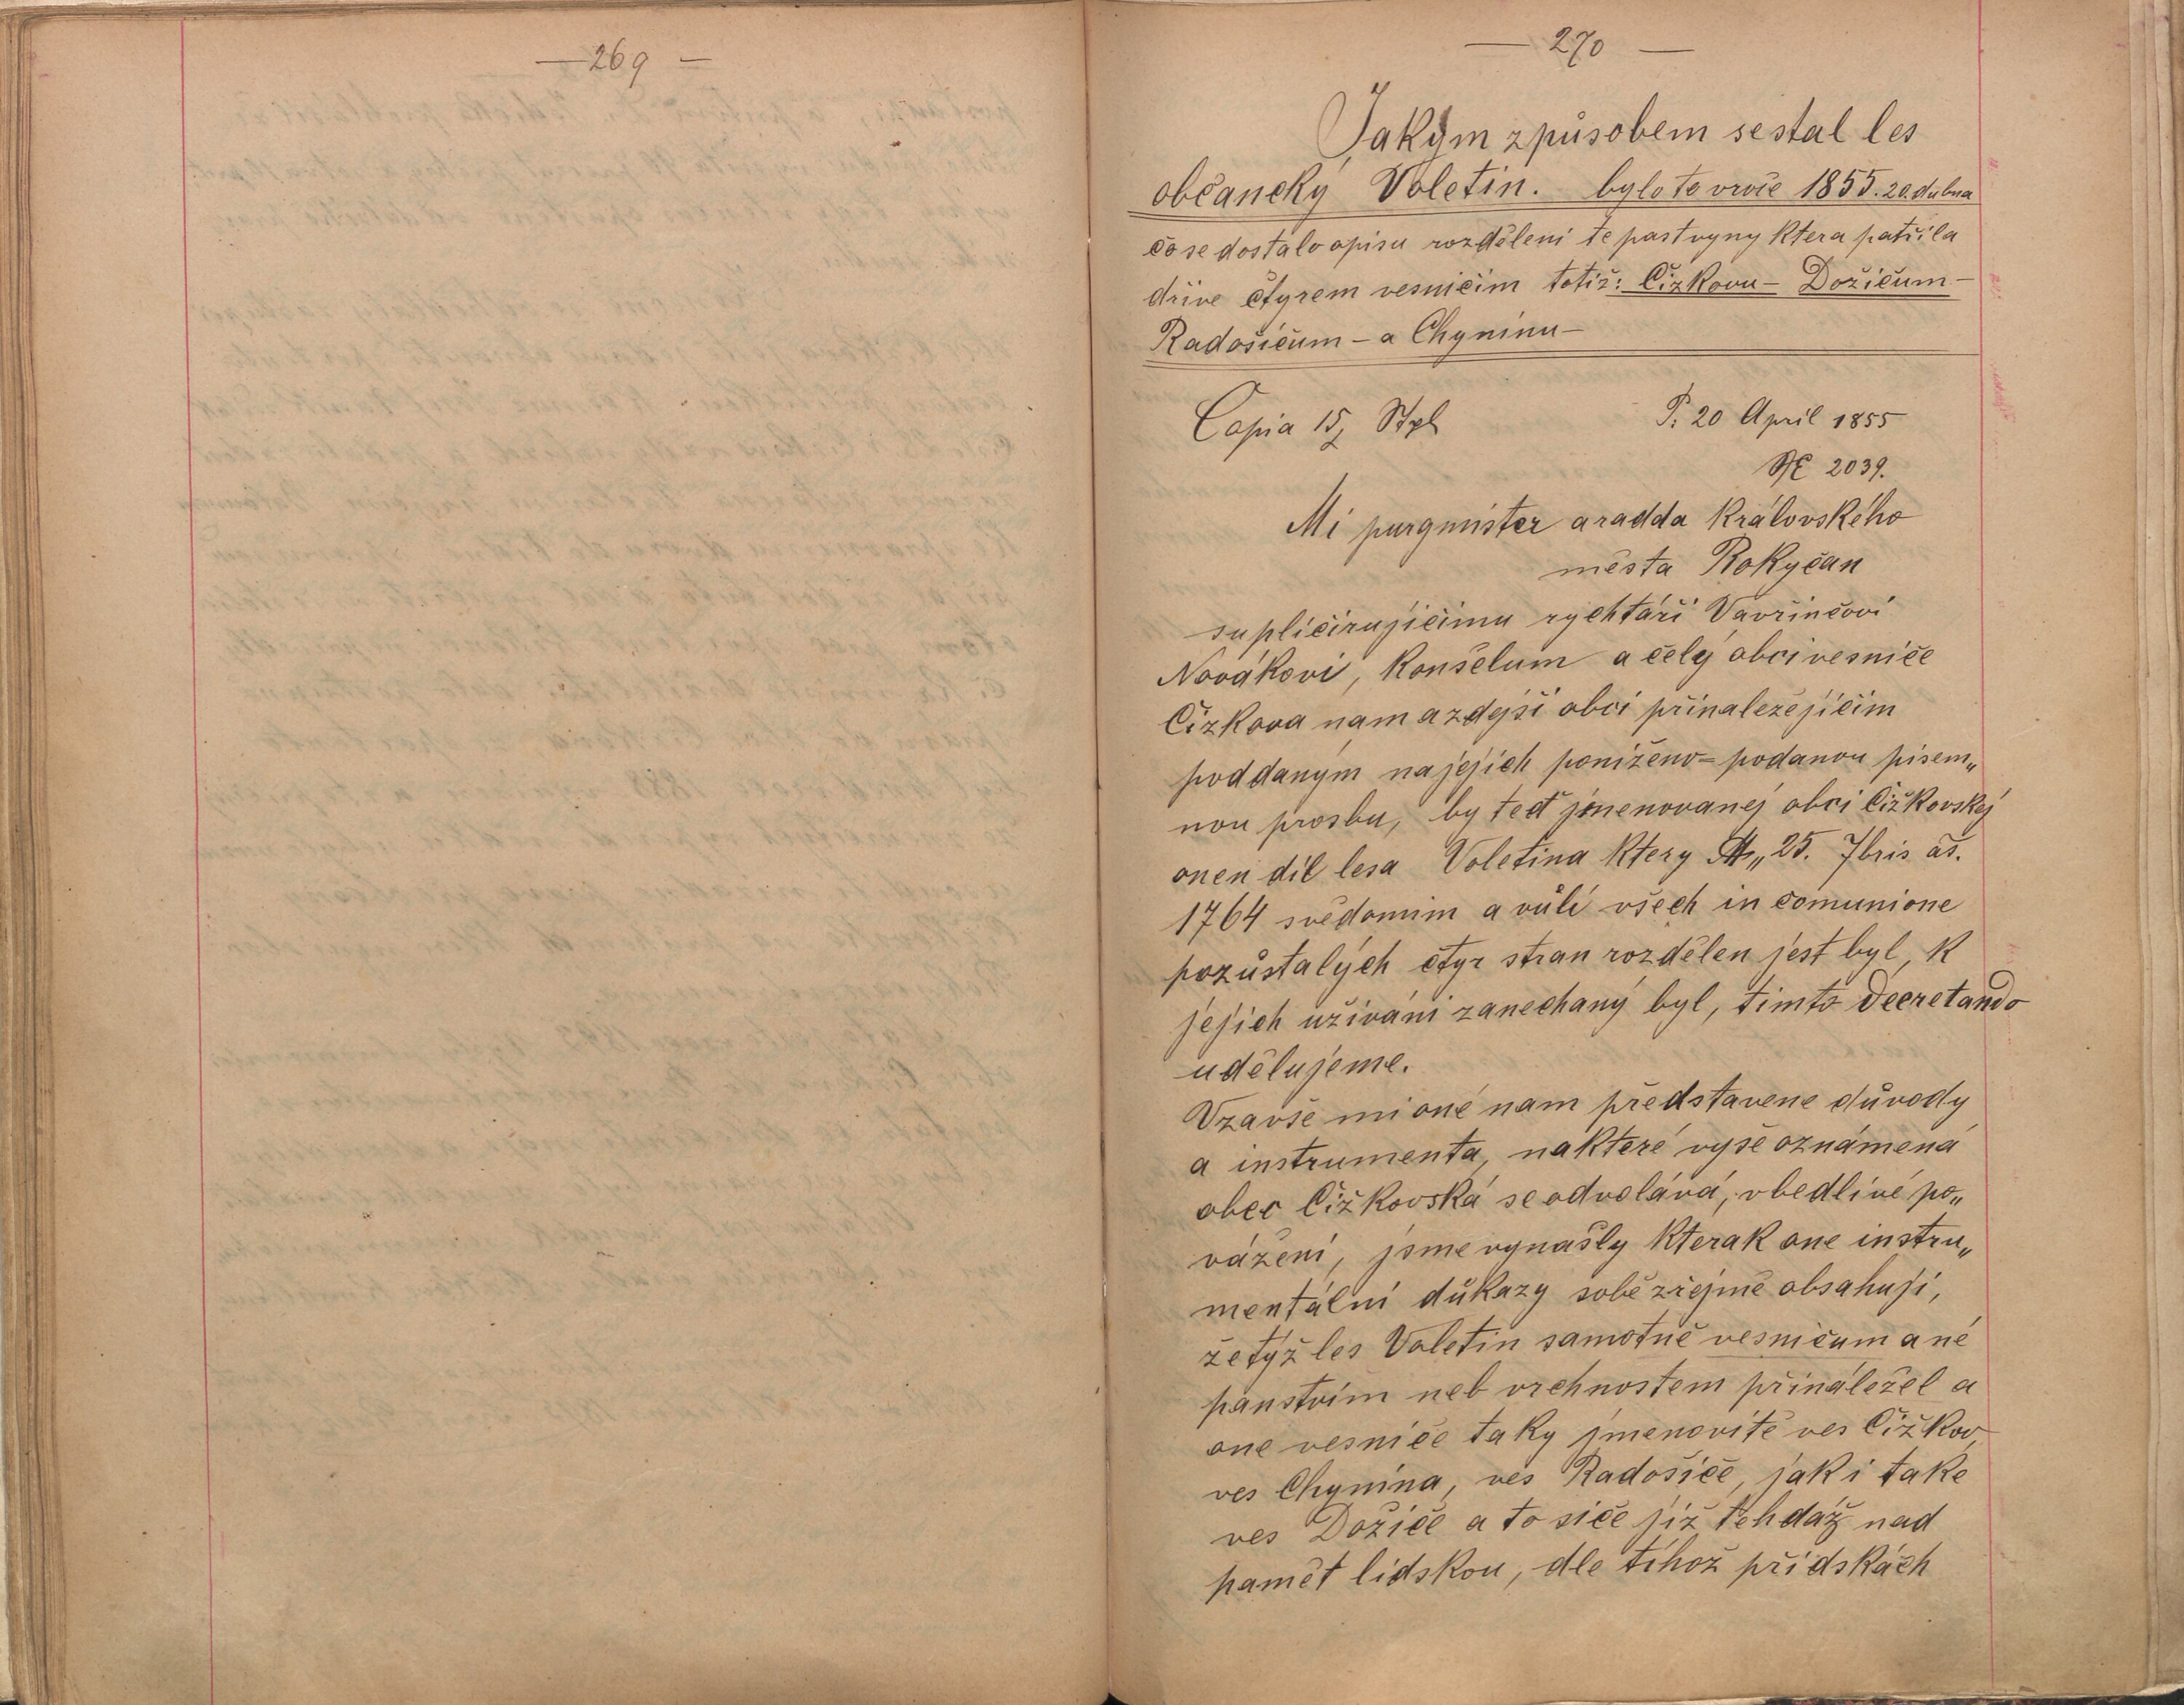 — 269 —
— 270 —
Jakým způsobem se stal les
občancky Voletin. bylo to vroce 1855. 20. dubna
co se dostalo opisu rozděleni te pastvyny ktera patřila
dřive čtyrem vesnicim totiž: Čizkovu – Dožicum –
Radošicum – a Chyninu –
Copia 15 Stpl
P: 20 April 1855
2039.
Mi purgmister a radda Královského
města Rokyčan
suplicirujicimu rychtáři Vavřincovi
Novákovi, Konšelum a cely obci vesnice
Čizkova nam a zdejší obci přinaležejicim
poddaným na jejich poniženo= podanou pisem„
nou prosbu, by teď jmenovanej obci Čižkovskej
onen díl lesa Voletina ktery 25. 7bris
1764 svědomim a vůlí všech in comunione
pozůstalých čtyr stran rozdělen jest byl, k
jejich užíváni zanechaný byl, tímto Decretando
udělujeme.
Vzavše mi oné nam představene důvody
a instrumenta, na které vyše oznámená
obec Čižkovská se odvolává, vbedlivé po„
váženi, jsme vynašly kterak one instru„
mentální důkazy sobě zřejmě obsahují,
že týž les Voletin samotně vesnicum a ne
panstvím neb vrchnostem přináležel a
one vesnice taky jmenovitě ves Čižkov,
ves Chynina, ves Radošice, jak i také
ves Dožice a to sice již tehdáž nad
pamět lidskou, dle tíhož při dskách